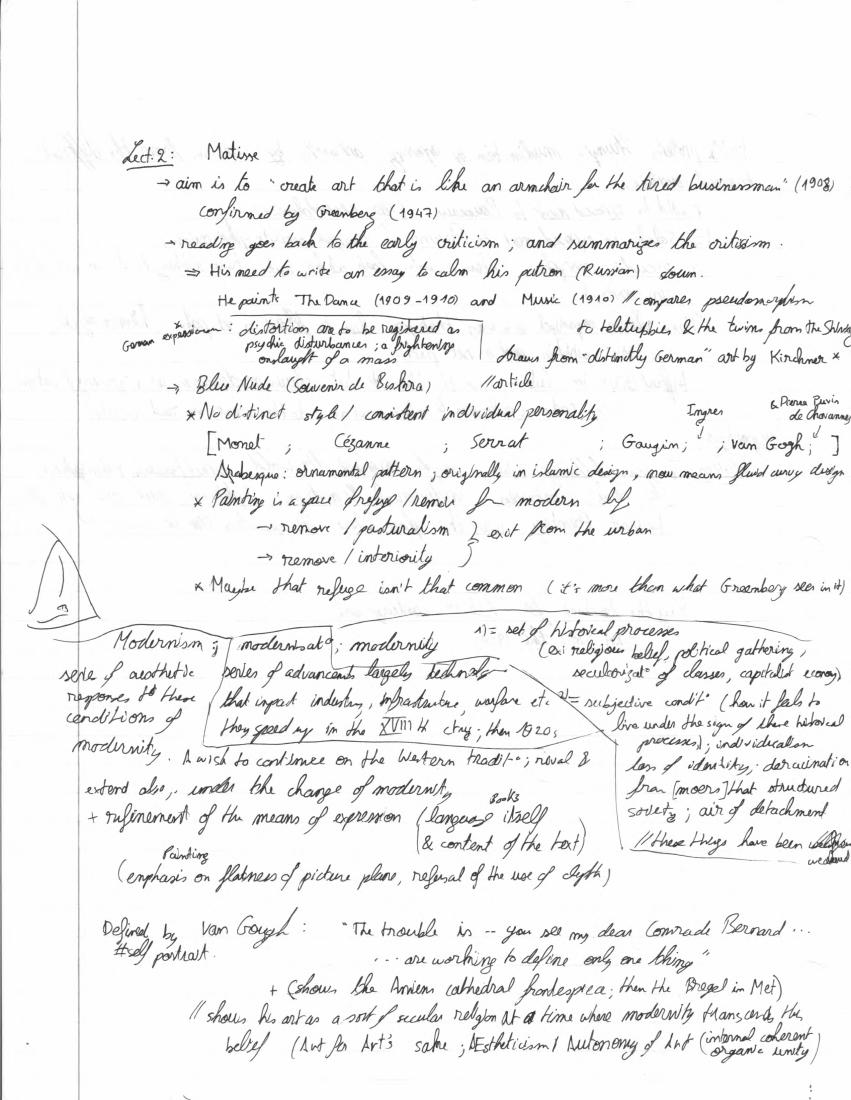 Lect. 2: Matisse
→ aim is to "create art that is like an armchair for the tired businessman" (1908)
confirmed by Greenberg (1947)
→ reading goes back to the early criticism ; and summarizes the critisism.
⇒ His need to write an essay to calm his patron (Russian) down.
He paints The Dance (1909-1910) and Music (1910) // compares pseudomorphism
to teletubbies & the twins from the Shining
* German expressionism : distortion are to be registered as
psychic disturbances ; a frightening
onslaught of a mass
draws from "distinctly German" art by Kirchner *
→ Blue Nude (Souvenir de Biskra) //article
* No distinct style / consistent individual personality
Ingres & Pierre Puvis de Chavannes
[Monet ; Cézanne ; Serrat ; Gaugin ; ; Van Gogh ; ]
Arabesque : ornamental pattern ; originally in islamic design, now means fluid curvy design
* Painting is a space of refuge / remove for modern life
→ remove / pasturalism } exit from the urban
→ remove / interiority
* Maybe that refuge isn't that common (it's more than what Greenberg sees in it)
Modernism ; modernisat° ; modernity
serie of aesthetic
responses to these
conditions of
modernity. A wish to continue on the Western tradit° ; rival &
extend also, under the change of modernity
+ refinement of the means of expression (language itself
Books
& content of the text)
Painting
(emphasis on flatness of picture plane, refusal of the use of depth)
series of advancements largely technolo
that impact industry, infrastructure, warfare etc
they speed up in the XVIII th ctry ; then 1920s
1) = set of historical processes
(ex: religious belief, political gathering,
secularizat° of classes, capitalist economy)
2) = subjective condit° (how it feels to
live under the sign of these historical
processes) ; individualian
loss of identity, deracination
from [moers] that structured
society ; air of detachment
// these things have been
Defined by Van Gough : "The trouble is -- you see my dear Comrade Bernard ...
#self portrait.
... are working to define only one thing"
+ (shows the Amiens cathedral ; then the Bregel in Met)
// shows his art as a sort of secular religion at a time where modernity transcends the
belief (Art for Art's sake ; AEstheticism / Autonomy of Art (internal coherent
organic unity)